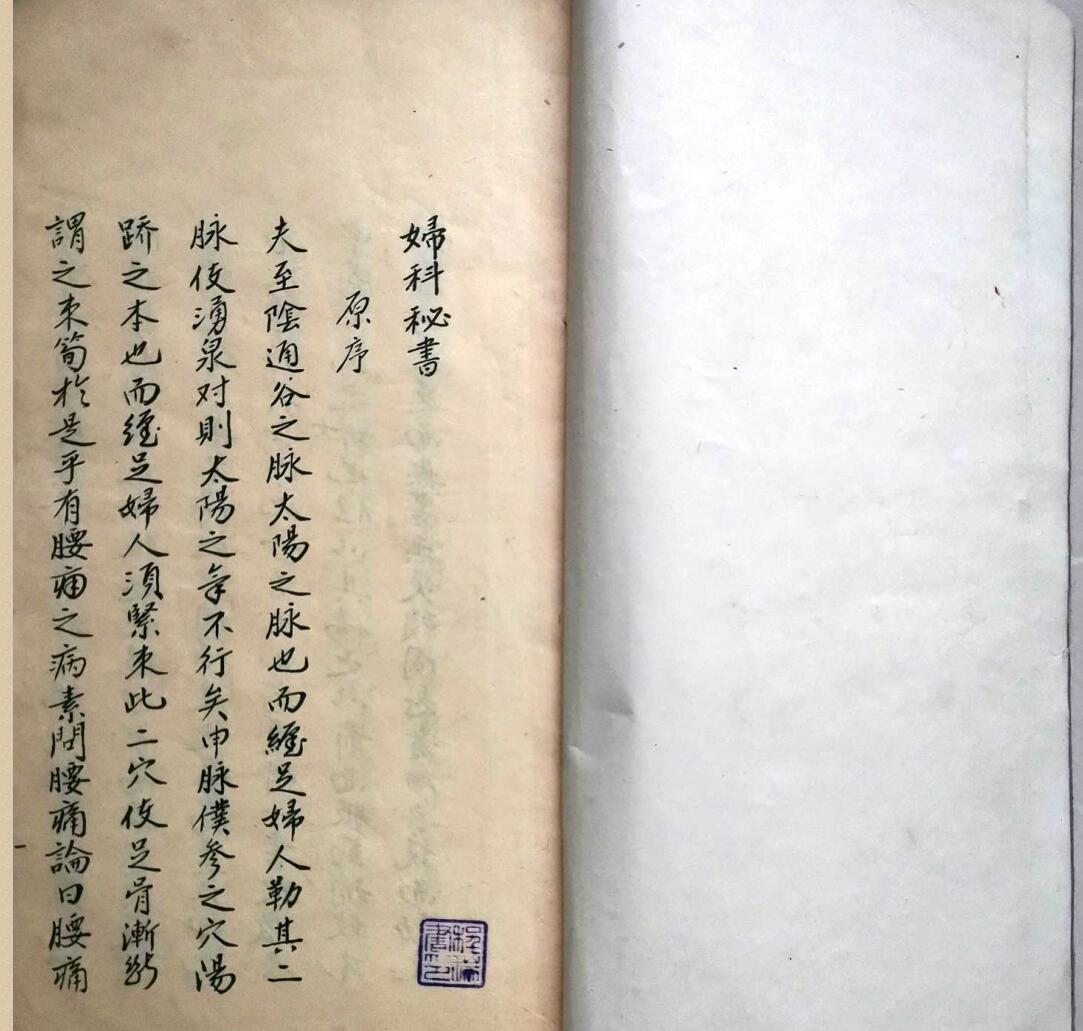 婦科秘書
原序
夫至陰通谷之脉太陽之脉也而纏足婦人勒其二
脉伎湧泉对則太陽之氣不行矣申脉僕参之穴陽
蹻之本也而纏足婦人須緊束此二穴伎足骨漸断
謂之束筍於是乎有腰痛之病素問腰痛論曰腰痛